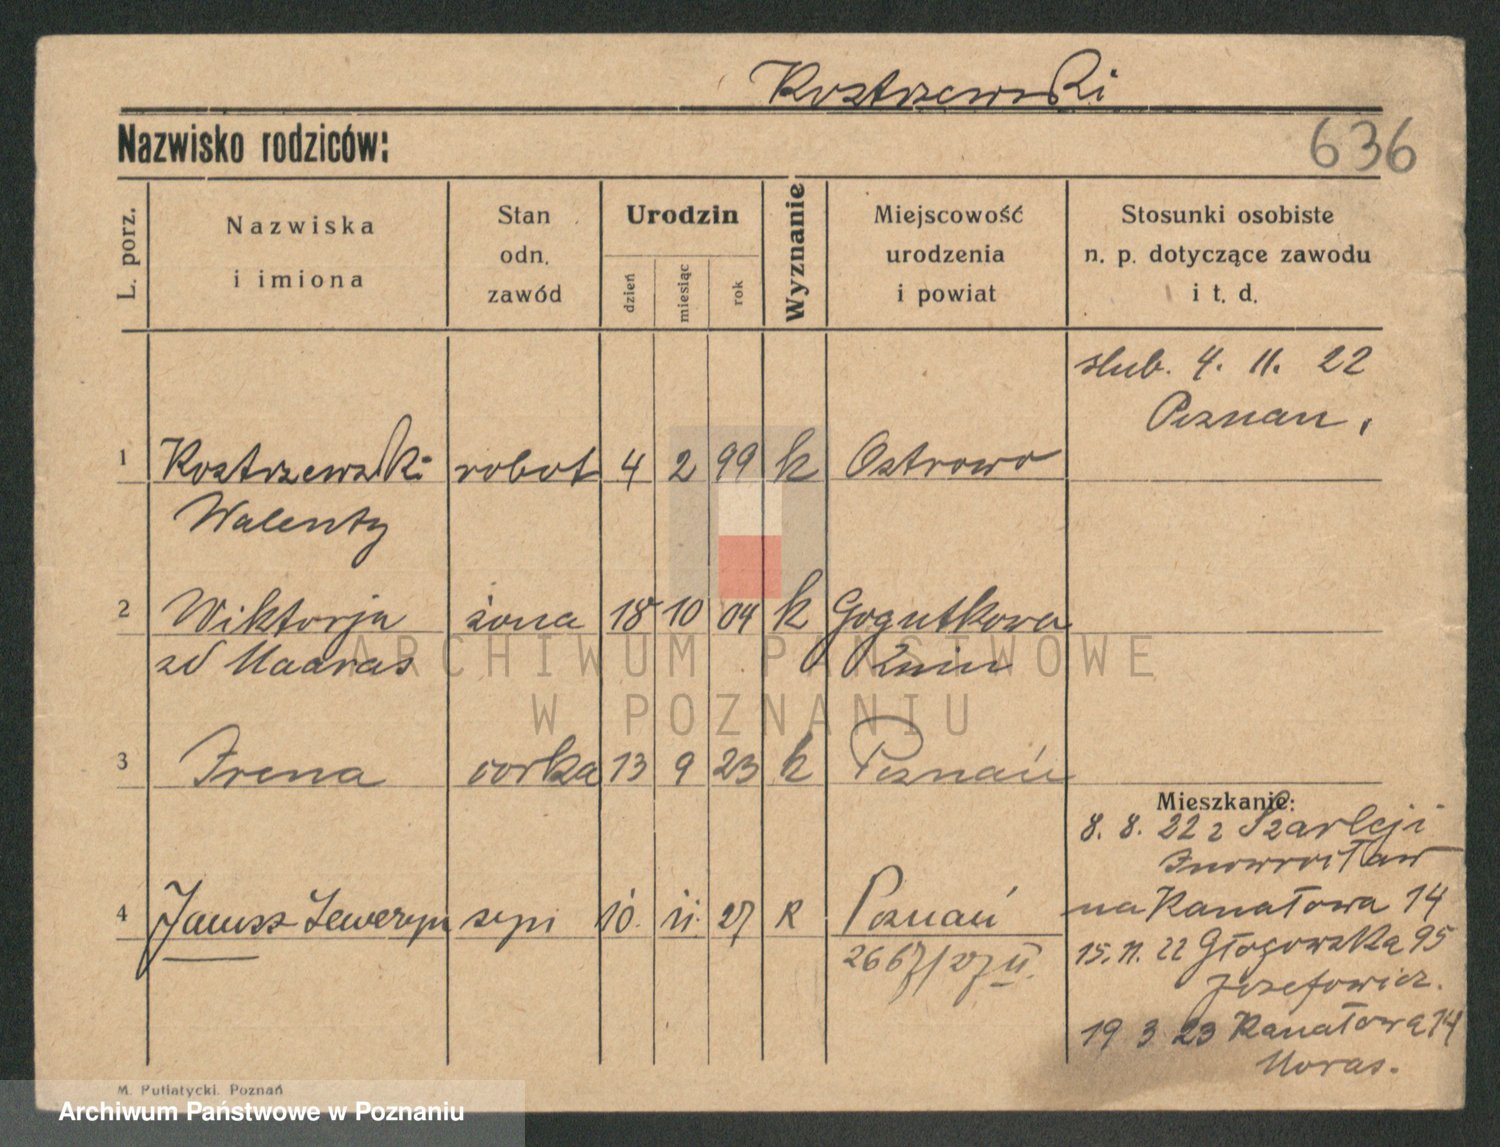 Kostrzewski
Nazwisko rodziców:
636
L. porz.
Nazwiska
i imiona
Stan
odn.
zawód
Urodzin
dzień
miesiąc
rok
Wyznanie
Miejscowość
urodzenia
i powiat
Stosunki osobiste
n. p. dotyczące zawodu
i t. d.
slub. 4. 11. 22
Poznan.
1 Kostrzewski robot 4 2 99 k Ostrowo
Walenty
2 Wiktorja żona 18 10 04 k
zd
Żnin
3 Irena corka 13 9 23 k Poznań
Mieszkanie:
8. 8. 22 z Szarleji
Inowrocław
4 Janusz Seweryn syn 10. 11. 27 k Poznań
2667/27 II.
na Kanałowa 14
15. 11. 22 Głogowska 95
Jozefowicz.
19 3 23 Kanałowa 14
Moras.
M. Putiatycki. Poznań
ARCHIWUM PAŃSTWOWE
W POZNANIU
Archiwum Państwowe w Poznaniu